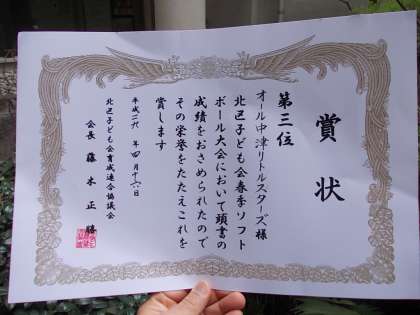 賞状
第三位
オール中津リトルスターズ様
北区子ども会春季ソフト
ボール大会において頭書の
成績をおさめられたので
その栄誉をたたえこれを
賞します
平成二六年四月十六日
北区子ども会育成連合協議会
会長 藤本正勝